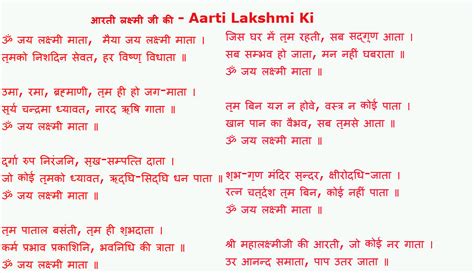 आरती लक्ष्मी जी की - Aarti Lakshmi Ki
ॐ जय लक्ष्मी माता, मैया जय लक्ष्मी माता ।
तुमको निशदिन सेवत, हर विष्णु विधाता ॥
ॐ जय लक्ष्मी माता ॥
उमा, रमा, ब्रह्माणी, तुम ही हो जग-माता ।
सूर्य चन्द्रमा ध्यावत, नारद ऋषि गाता ॥
ॐ जय लक्ष्मी माता ॥
दुर्गा रुप निरंजनि, सुख-सम्पत्ति दाता ।
जो कोई तुमको ध्यावत, ऋद्धि-सिद्धि धन पाता ॥
ॐ जय लक्ष्मी माता ॥
तुम पाताल बसंती, तुम ही शुभदाता ।
कर्म प्रभाव प्रकाशिनि, भवनिधि की त्राता ।
ॐ जय लक्ष्मी माता ॥
जिस घर में तुम रहती, सब सद्गुण आता ।
सब सम्भव हो जाता, मन नहीं घबराता ॥
ॐ जय लक्ष्मी माता ॥
तुम बिन यज्ञ न होवे, वस्त्र न कोई पाता ।
खान पान का वैभव, सब तुमसे आता ॥
ॐ जय लक्ष्मी माता ॥
शुभ-गुण मंदिर सुन्दर, क्षीरोदधि-जाता ।
रत्न चतुर्दश तुम बिन, कोई नहीं पाता ॥
ॐ जय लक्ष्मी माता ॥
श्री महालक्ष्मीजी की आरती, जो कोई नर गाता ।
उर आनन्द समाता, पाप उतर जाता ।